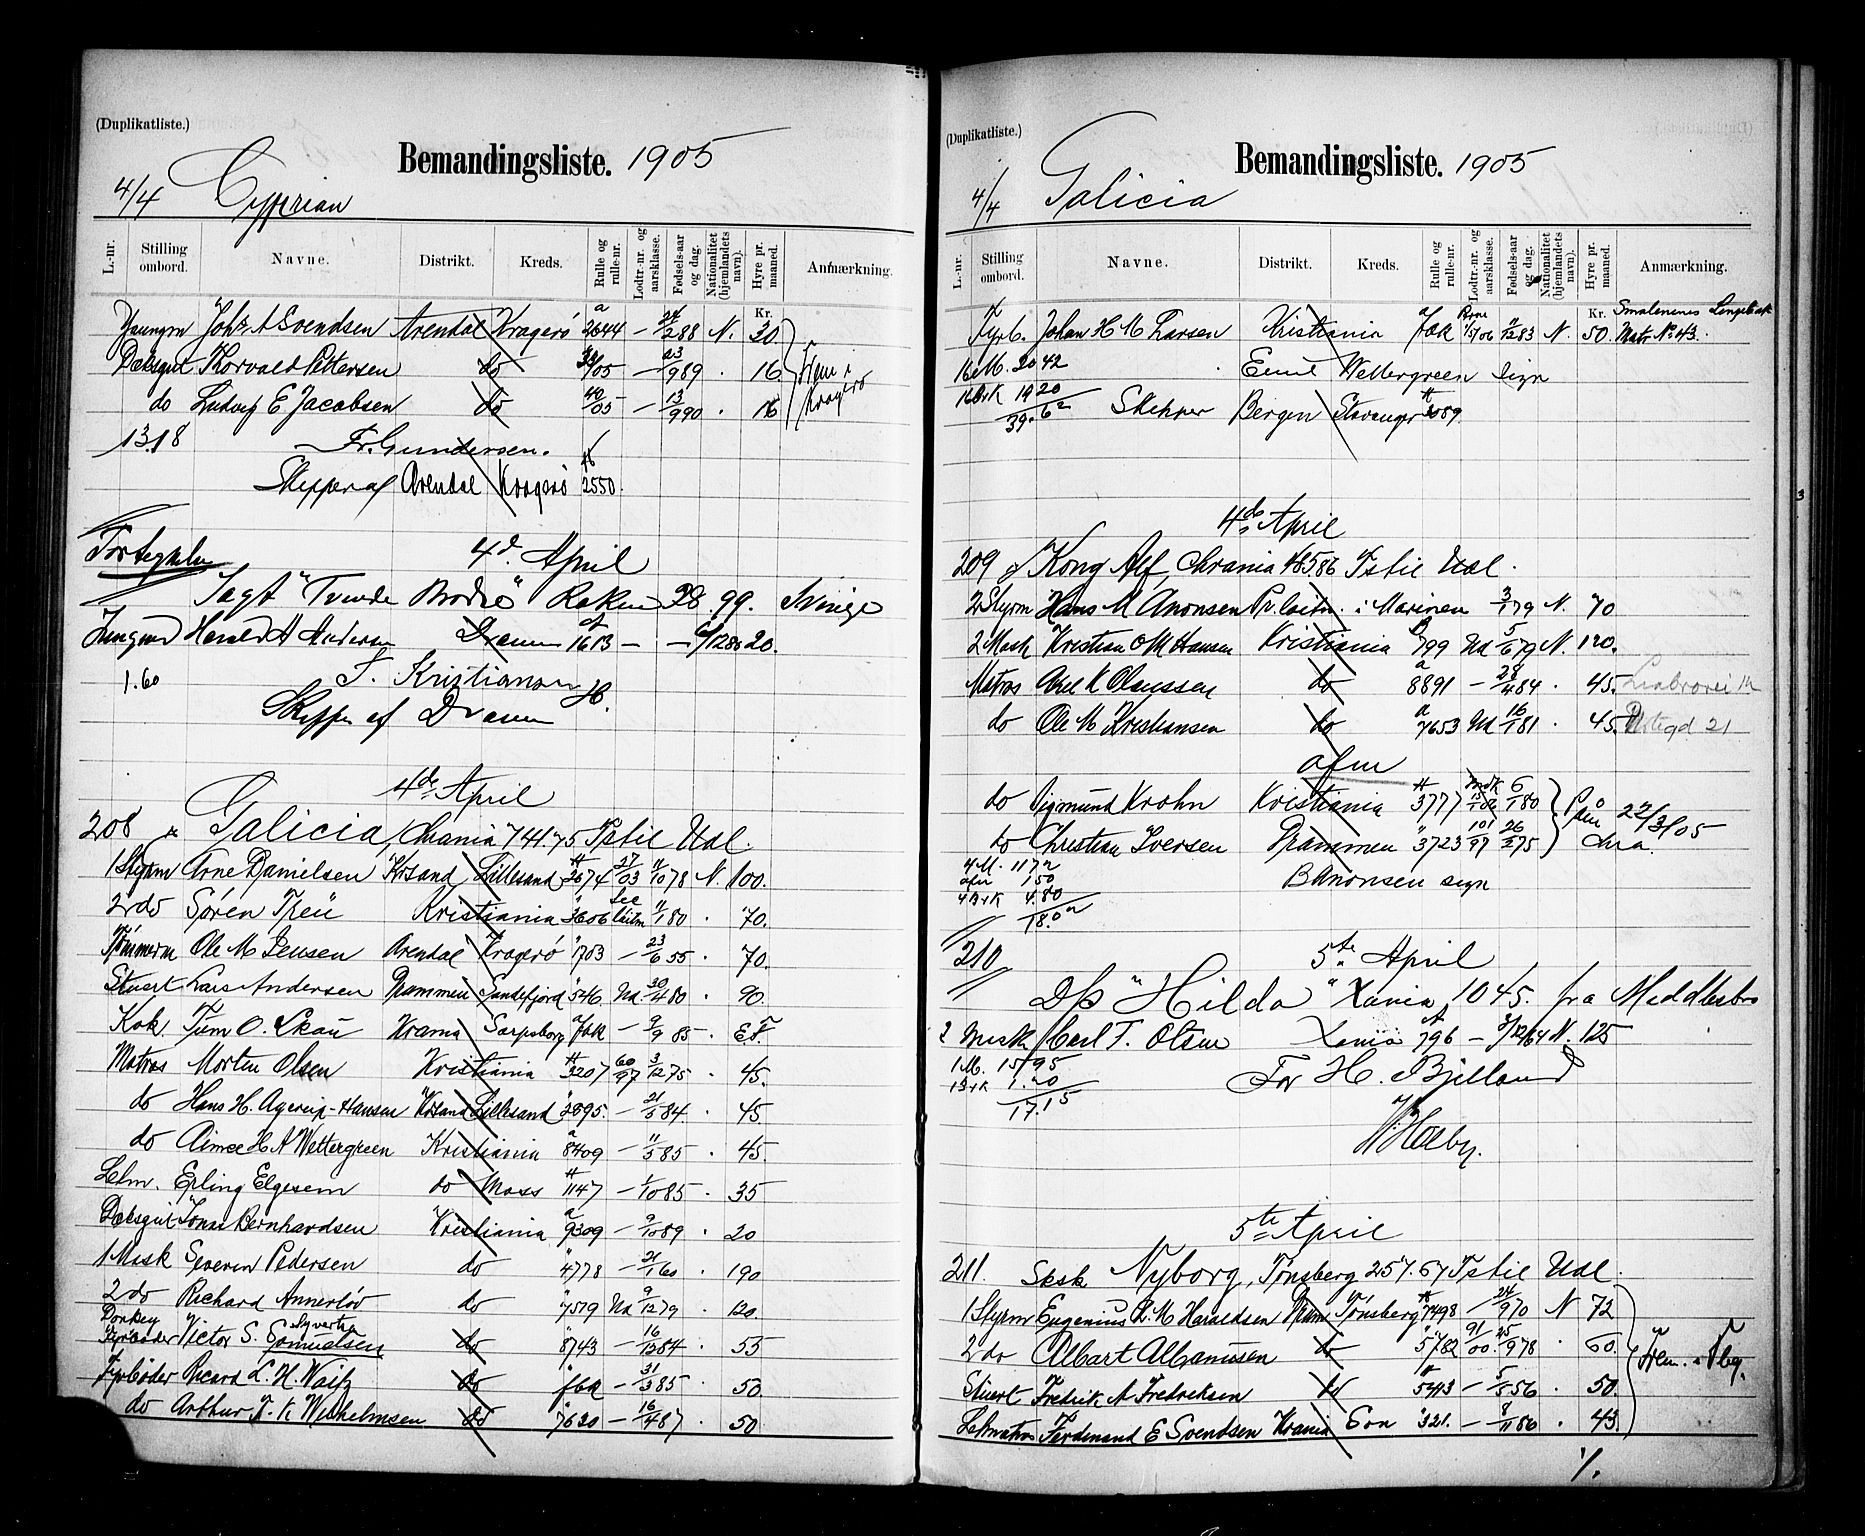 (Duplikatliste.)
Bemandingsliste. 1905
4/4 Cyprian
L.-nr. Stilling ombord. Navne. Distrikt. Kreds. Rulle og rulle-nr. Lodtr.-nr. og aarsklasse. Fødsels-aar og dag. Nationalitet (hjemlandets navn). Hyre pr. maaned. Anmærkning.
Kr.
Joh. A Svendsen Arendal Kragerø a 2644 — 24/2 88 N. 20
Dæksgut Thorvald Pettersen do 32/05 — 23/9 89 . 16
do Ludvig E Jacobsen do 40/05 — 13/9 90 . 16
Hjem i Kragerø
13.18 Fr. Gundersen.
Skipper af Arendal Kragerø H 2550.
4d April
Jagt "Tvende Brødre" 38.99. Svinge
Jungmd Harald A Andersen Dram a 1613 — 20.
1.60 F. Kristiansen
Skipper af Dramm H.
4de April
208 Galicia, Chrania 741.75 Pstil Udl.
1 Styrm Arne Danielsen Krsand Lillesand H 2674 27/03 11/10 78 N. 100.
2 do Søren Treü Kristiania " 3606 11/1 80 . 70.
Tømmerm Ole M Jensen Arendal Kragerø " 1703 — 23/6 55 . 70.
Stuert Lars Andersen Drammen Sandefjord " 546 Ud 30/4 80 . 90.
Kok O. Skau Krania Sarpsborg fak — 9/9 85 .
Matros Morten Olsen Kristiania H 3207 60/97 3/12 75 . 45.
do Hans H. Agerup-Hansen Krsand Lillesand " 2895. — 21/5 84 . 45.
do Aimee H A Wettergreen Kristiania a 8409 — 11/5 85 . 45.
Letm. Erling Elgesem do Moss H 1147 — 1/10 85 . 35
Dæksgut Jonas Bernhardsen Kristiania a 9309 — 9/10 89 . 20
1 Mask Severin Pedersen do " 4778 — 21/1 60 . 190
2 do Richard Annerløv do " 7519 Ud 9/12 79 . 120.
Donkey
Fyrbøder Victor S. Syvertsen Samuelsen do " 8743 — 16/12 84 . 55
Fyrbøder Ricard L. H. Waitz do fak — 31/3 85 . 50.
do Arthur T. K Wilhelmsen do " 7620 — 16/4 87 . 50
(Duplikatliste.)
Bemandingsliste. 1905
4/4 Galicia
L.-nr. Stilling ombord. Navne. Distrikt. Kreds. Rulle og rulle-nr. Lodtr.-nr. og aarsklasse. Fødsels-aar og dag. Nationalitet (hjemlandets navn). Hyre pr. maaned. Anmærkning.
Kr.
Fyrb. Johan H M Larsen Kristiania a fak 11/12 83 N. 50. Smalenenes Matr. No 43.
16 M. 20 42 Emil Wettergreen sign
16 B&K 19 20 Skipper Bergen Stavanger H 3089.
39.62
4de April
209 Kong Alf, Chrania 485.86 Pstil Udl.
2 Styrm Hans M Anonsen Pr. løitn. i Marinen 3/1 79 N. 70
2 Mask Kristian O M Hansen Kristiania 799 Ud 5/6 79 N. 120.
Matros Axel K Olaussen do a 8891 — 28/4 84 . 45.
do Ole M Kristiansen do a 7653 Ud 16/1 81 . 45. 21
afm
do Sigmund Krohn Kristiania H 3777 6/1 80
do Christian Iversen Drammen " 3723 101/97 26/2 75
Paam 22/3/05 Chra.
4 M. 11 72
afm 1 50
4 B&K 4.80
18.02
B Anonsen sign
210 5te April
D/s "Hilda" Xania 1045. fra Middlesbro
2 Mask Carl F. Olsen Xania 796 — N. 125
1 M. 15 95
1 B&K 1.20
17.15
For H. Bjelland
5te April
211. Sksk Nyborg, Tønsberg 257.67 Pstil Udl.
1 Styrm Eugenius L. M. Haraldsen Dram Tønsberg H 7498 — 24/9 70 N 72
2 do Albart Albanussen do " 5782 91/00 25/9 78 . 60.
Stuert Fredrik A Fredriksen do " 5443 — 5/5 56 . 50.
Letmatros Ferdinand E Svendsen Krania Son " 321. — 8/11 86 . 43
Frem. i Tbg.
%.